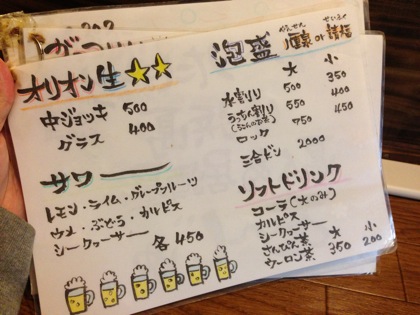 がつ
オリオン生 ★★
中ジョッキ 500
グラス 400
サワー
レモン・ライム・グレープフルーツ
ウメ・ぶどう・カルピス
シークァーサー
各 450
泡盛 or 請福
せいふく
大 小
水割り 500 350
うっちん割り 550 400
ロック 750 450
三合ビン 2000
ソフトドリンク
コーラ (大のみ)
カルピス
シークァーサー
さんぴん茶 大 小
ウーロン茶 350 200